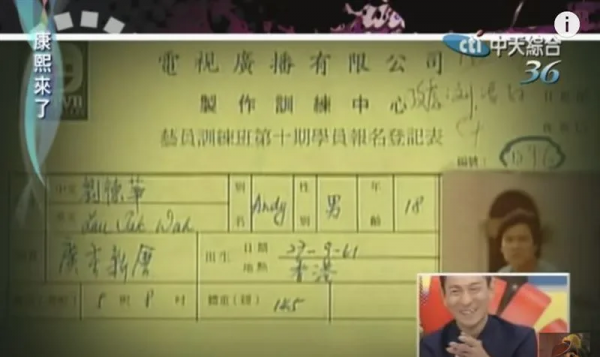 康熙來了
cti 中天綜合
36
電視廣播有限公司
製作訓練中心
藝員訓練班第十期學員報名登記表
編號:
中文 劉德華 別名 Andy 性別 男 年齡 18
英文 Lau Tak Wah
廣東新會 出生 日期 27-9-61
地點 香港
5 呎 8 吋 體重(磅) 145